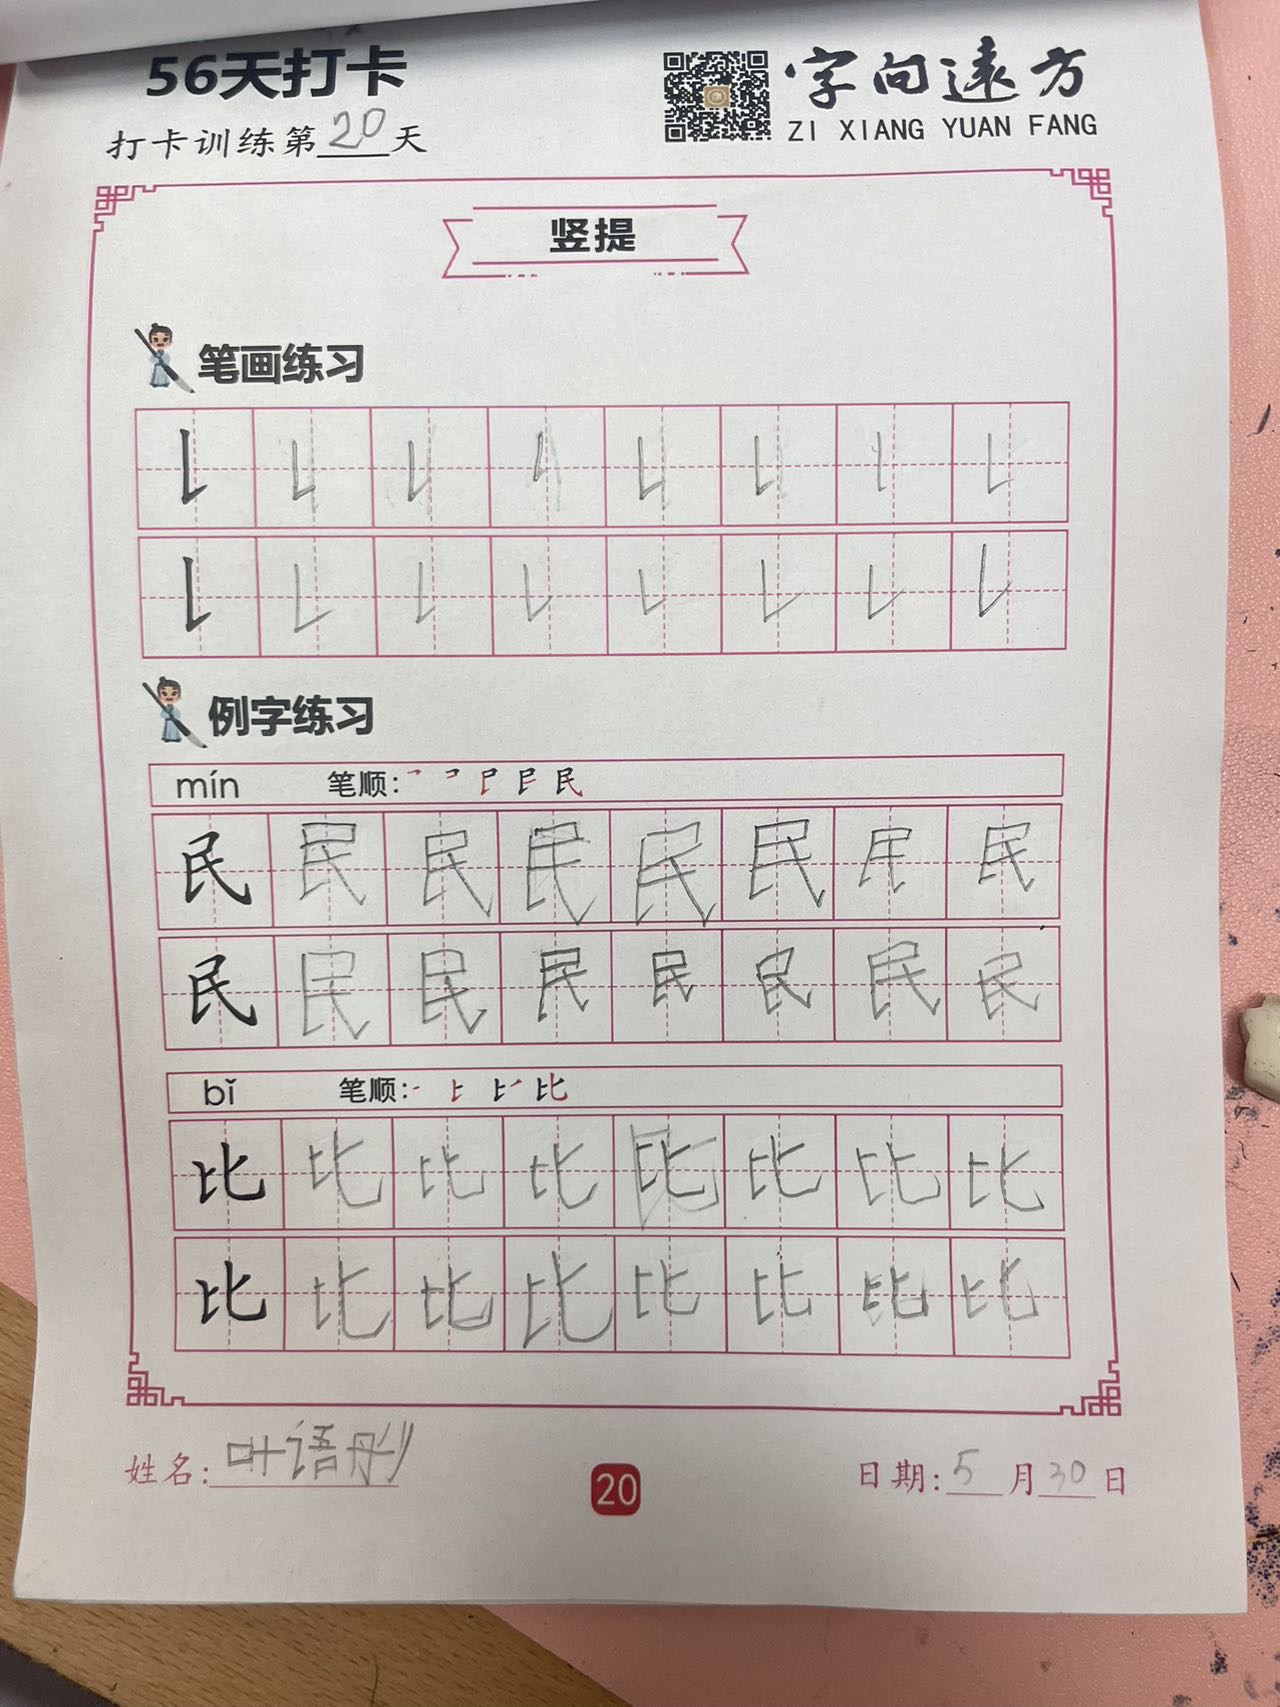 56天打卡
字向远方
ZI XIANG YUAN FANG
打卡训练第20天
竖提
笔画练习
例字练习
mín 笔顺:
民民民民民民民民
民民民民民民民民
bǐ 笔顺:
比比比比比比比比
比比比比比比比比
姓名:叶语彤
20
日期:5月30日